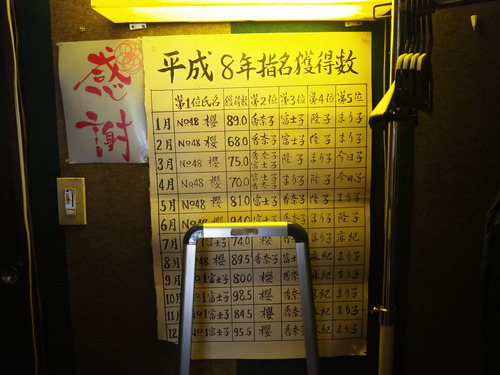 感謝
平成8年指名獲得数
第1位氏名 獲得数 第2位 第3位 第4位 第5位
1月 No48 櫻 89.0 香奈子 富士子 隆子 まり子
2月 No48 櫻 68.0 香奈子 富士子 隆子 まり子
3月 No48 櫻 75.0 香奈子 富士子 隆子 まり子 今日子
4月 No48 櫻 70.0 富士子 香奈子 まり子 隆子 今日子
5月 No48 櫻 81.0 富士子 香奈子 隆子 まり子
6月 No48 櫻 94.0 富士子 香奈子 まり子 隆子
7月 1 富士子 74.0 櫻 まり子 麻紀
8月 48 櫻 89.5 香奈子 富士子 麻紀 まり子
9月 No1 富士子 80.0 櫻 香奈子 麻紀 まり子
10月 No1 富士子 98.5 櫻 香奈子 麻紀 まり子
11月 No1 富士子 84.5 櫻 香奈子 まり子 麻紀
12 No1 富士子 95.5 櫻 香奈子 麻紀 まり子